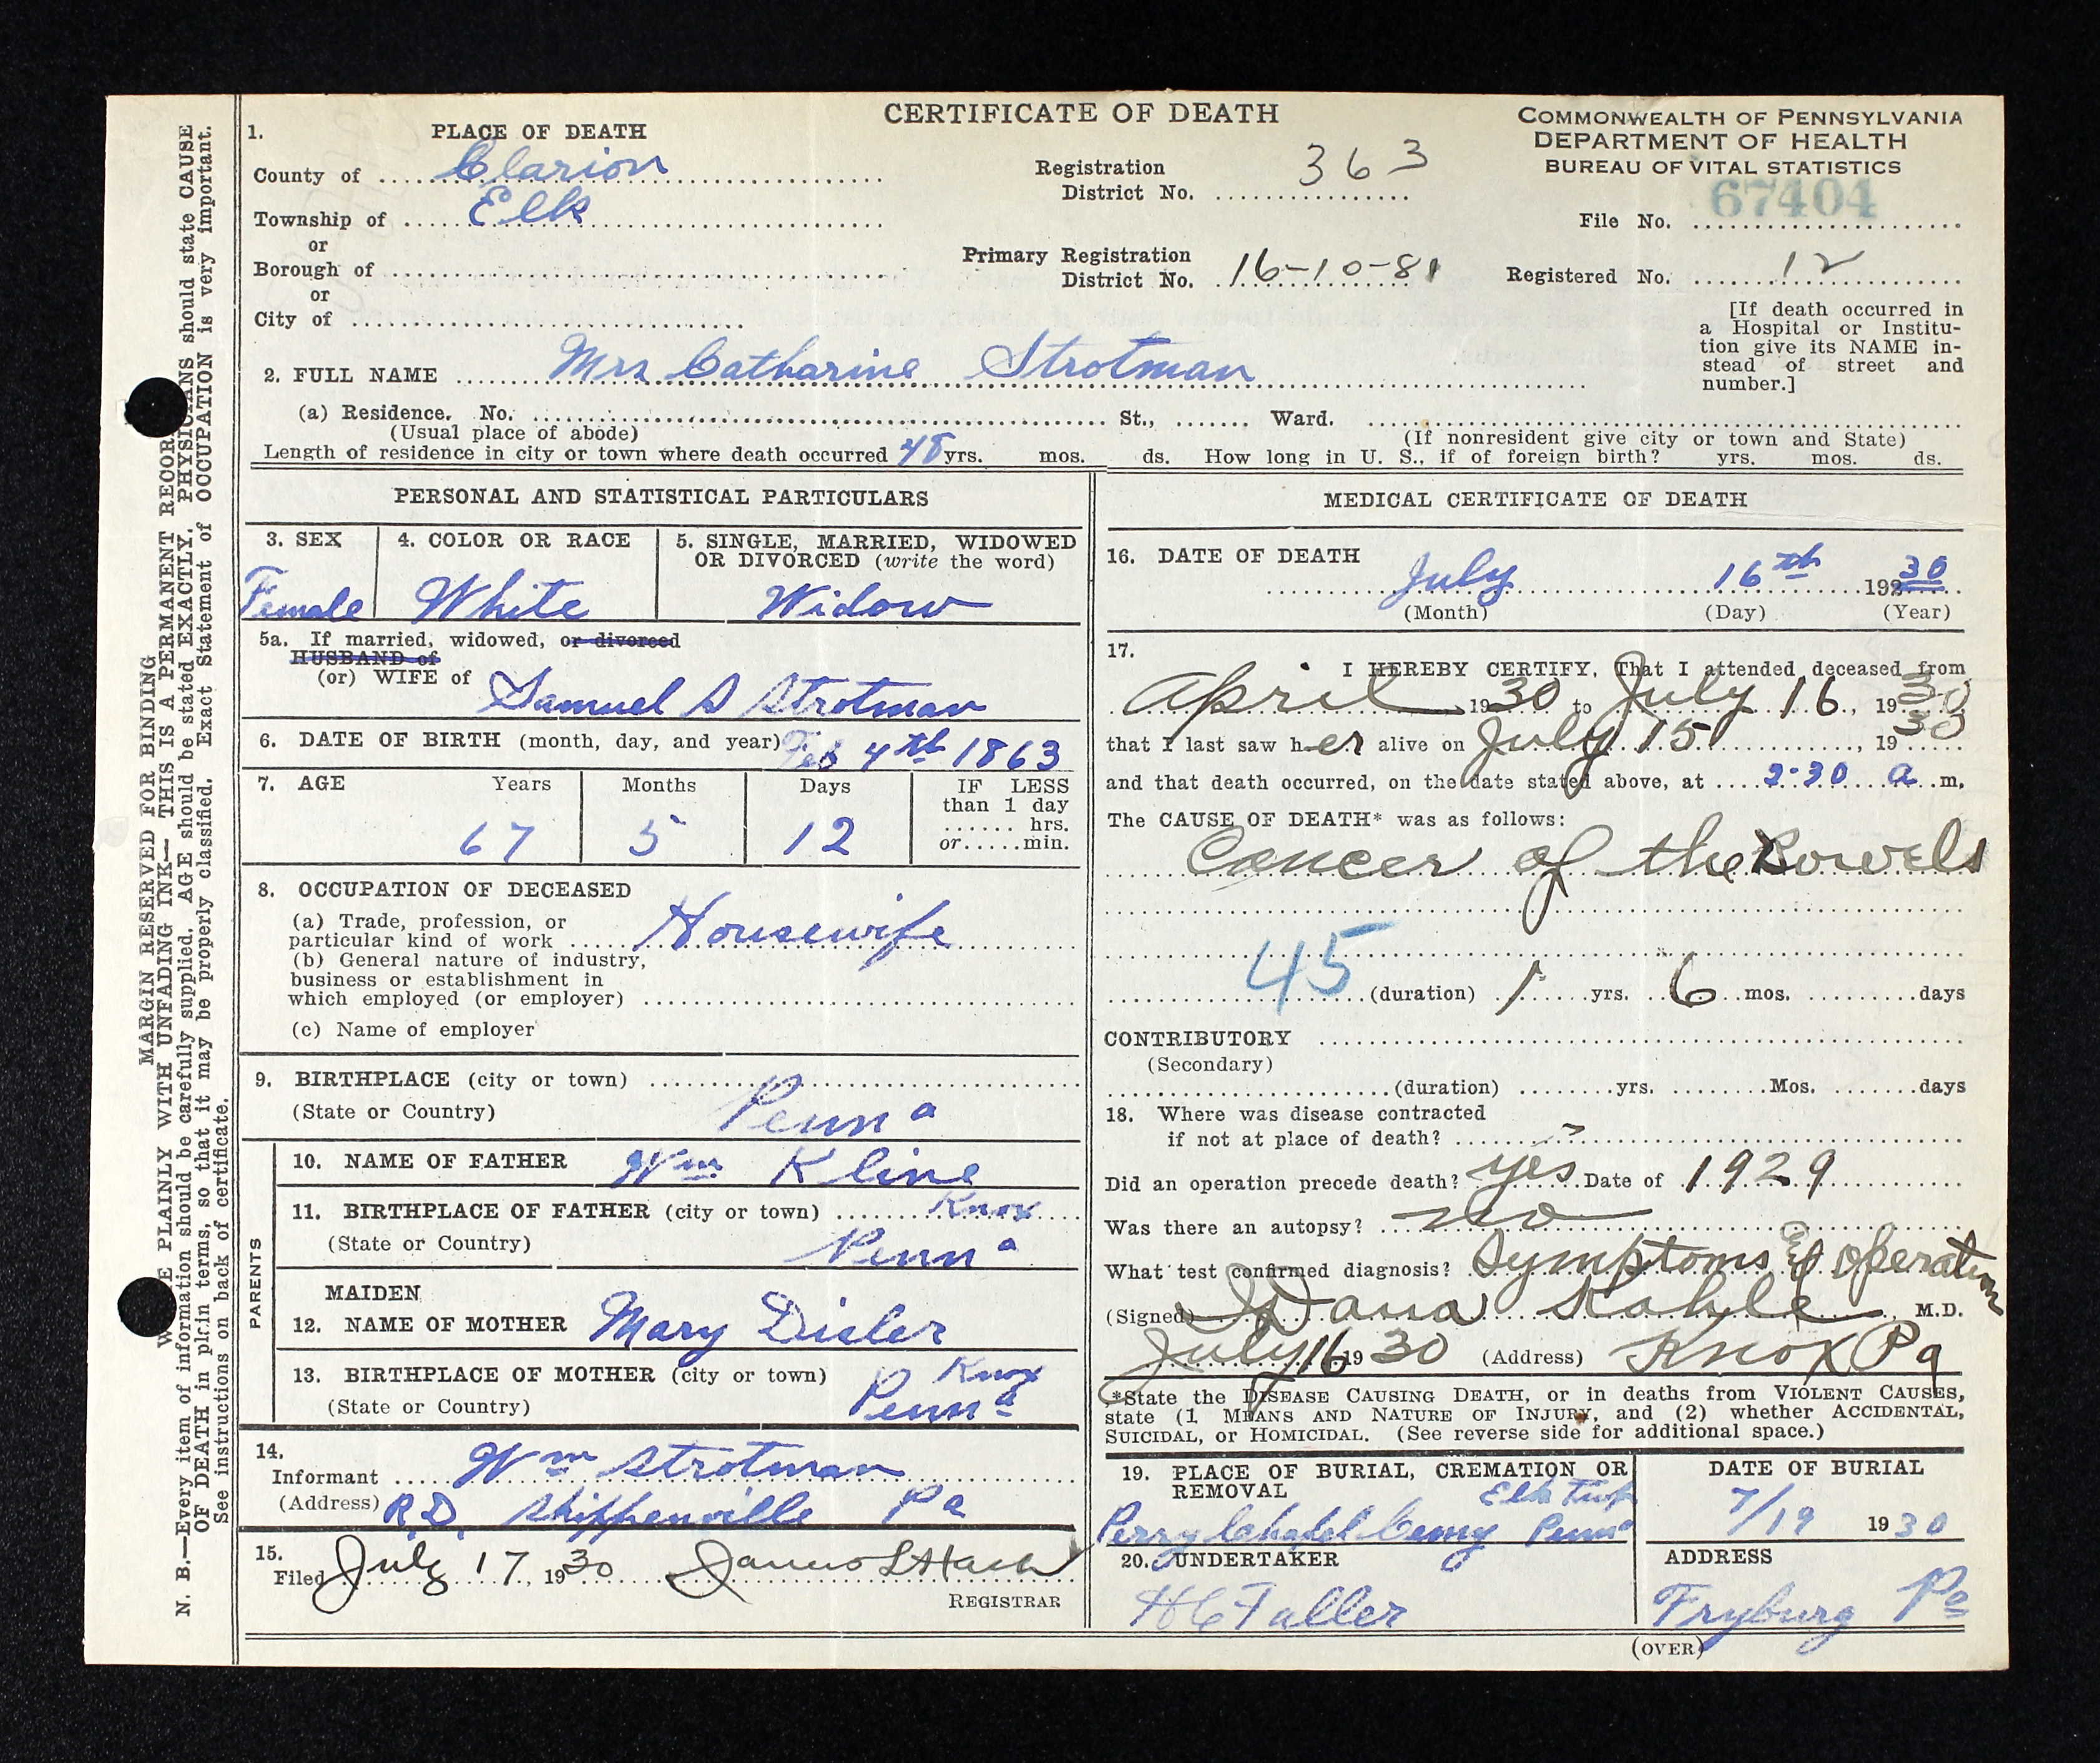 CERTIFICATE OF DEATH
COMMONWEALTH OF PENNSYLVANIA
DEPARTMENT OF HEALTH
BUREAU OF VITAL STATISTICS
1. PLACE OF DEATH
County of Clarion
Township of Elk
or
Borough of
or
City of
Registration
District No. 363
Primary Registration
District No. 16-10-81
67404
File No.
Registered No. 12
[If death occurred in
a Hospital or Institu-
tion give its NAME in-
stead of street and
number.]
2. FULL NAME Mrs Catharine Strotman
(a) Residence. No. St., Ward.
(Usual place of abode) (If nonresident give city or town and State)
Length of residence in city or town where death occurred 48 yrs. mos. ds. How long in U. S., if of foreign birth? yrs. mos. ds.
PERSONAL AND STATISTICAL PARTICULARS
3. SEX
Female
4. COLOR OR RACE
White
5. SINGLE, MARRIED, WIDOWED
OR DIVORCED (write the word)
Widow
5a. If married, widowed, or divorced
HUSBAND of
(or) WIFE of Samuel S Strotman
6. DATE OF BIRTH (month, day, and year) Feb 4th 1863
7. AGE Years Months Days IF LESS
than 1 day
hrs.
or min.
67 5 12
8. OCCUPATION OF DECEASED
(a) Trade, profession, or
particular kind of work Housewife
(b) General nature of industry,
business or establishment in
which employed (or employer)
(c) Name of employer
9. BIRTHPLACE (city or town)
(State or Country) Penna
PARENTS
10. NAME OF FATHER Wm Kline
11. BIRTHPLACE OF FATHER (city or town) Knox
(State or Country) Penna
MAIDEN
12. NAME OF MOTHER Mary Disler
13. BIRTHPLACE OF MOTHER (city or town) Knox
(State or Country) Penna
14.
Informant Wm Strotman
(Address) R.D. Shippenville Pa
15.
Filed July 17, 1930
REGISTRAR
MEDICAL CERTIFICATE OF DEATH
16. DATE OF DEATH
July 16th 192 30
(Month) (Day) (Year)
17.
I HEREBY CERTIFY, That I attended deceased from
April 1930 to July 16, 1930
that I last saw her alive on July 15, 1930
and that death occurred, on the date stated above, at 2-30 a m.
The CAUSE OF DEATH* was as follows:
Cancer of the Bowels
45
(duration) 1 yrs. 6 mos. days
CONTRIBUTORY
(Secondary)
(duration) yrs. Mos. days
18. Where was disease contracted
if not at place of death?
Did an operation precede death? yes Date of 1929
Was there an autopsy? no
What test confirmed diagnosis? Symptoms and Operation
(Signed) Dana Kahle M.D.
July 16 1930 (Address) Knox Pa
*State the DISEASE CAUSING DEATH, or in deaths from VIOLENT CAUSES,
state (1 MEANS AND NATURE OF INJURY, and (2) whether ACCIDENTAL,
SUICIDAL, or HOMICIDAL. (See reverse side for additional space.)
19. PLACE OF BURIAL, CREMATION OR
REMOVAL Elk Twp
Perry Chapel Cemy Penna
DATE OF BURIAL
7/19 1930
20. UNDERTAKER
H C Faller
ADDRESS
Fryburg Pa
(OVER)
MARGIN RESERVED FOR BINDING
PLAINLY WITH UNFADING INK—THIS IS A PERMANENT RECOR
N. B.—Every item of information should be carefully supplied. AGE should be stated EXACTLY. PHYSICIANS should state CAUSE
OF DEATH in plain terms, so that it may be properly classified. Exact Statement of OCCUPATION is very important.
See instructions on back of certificate.